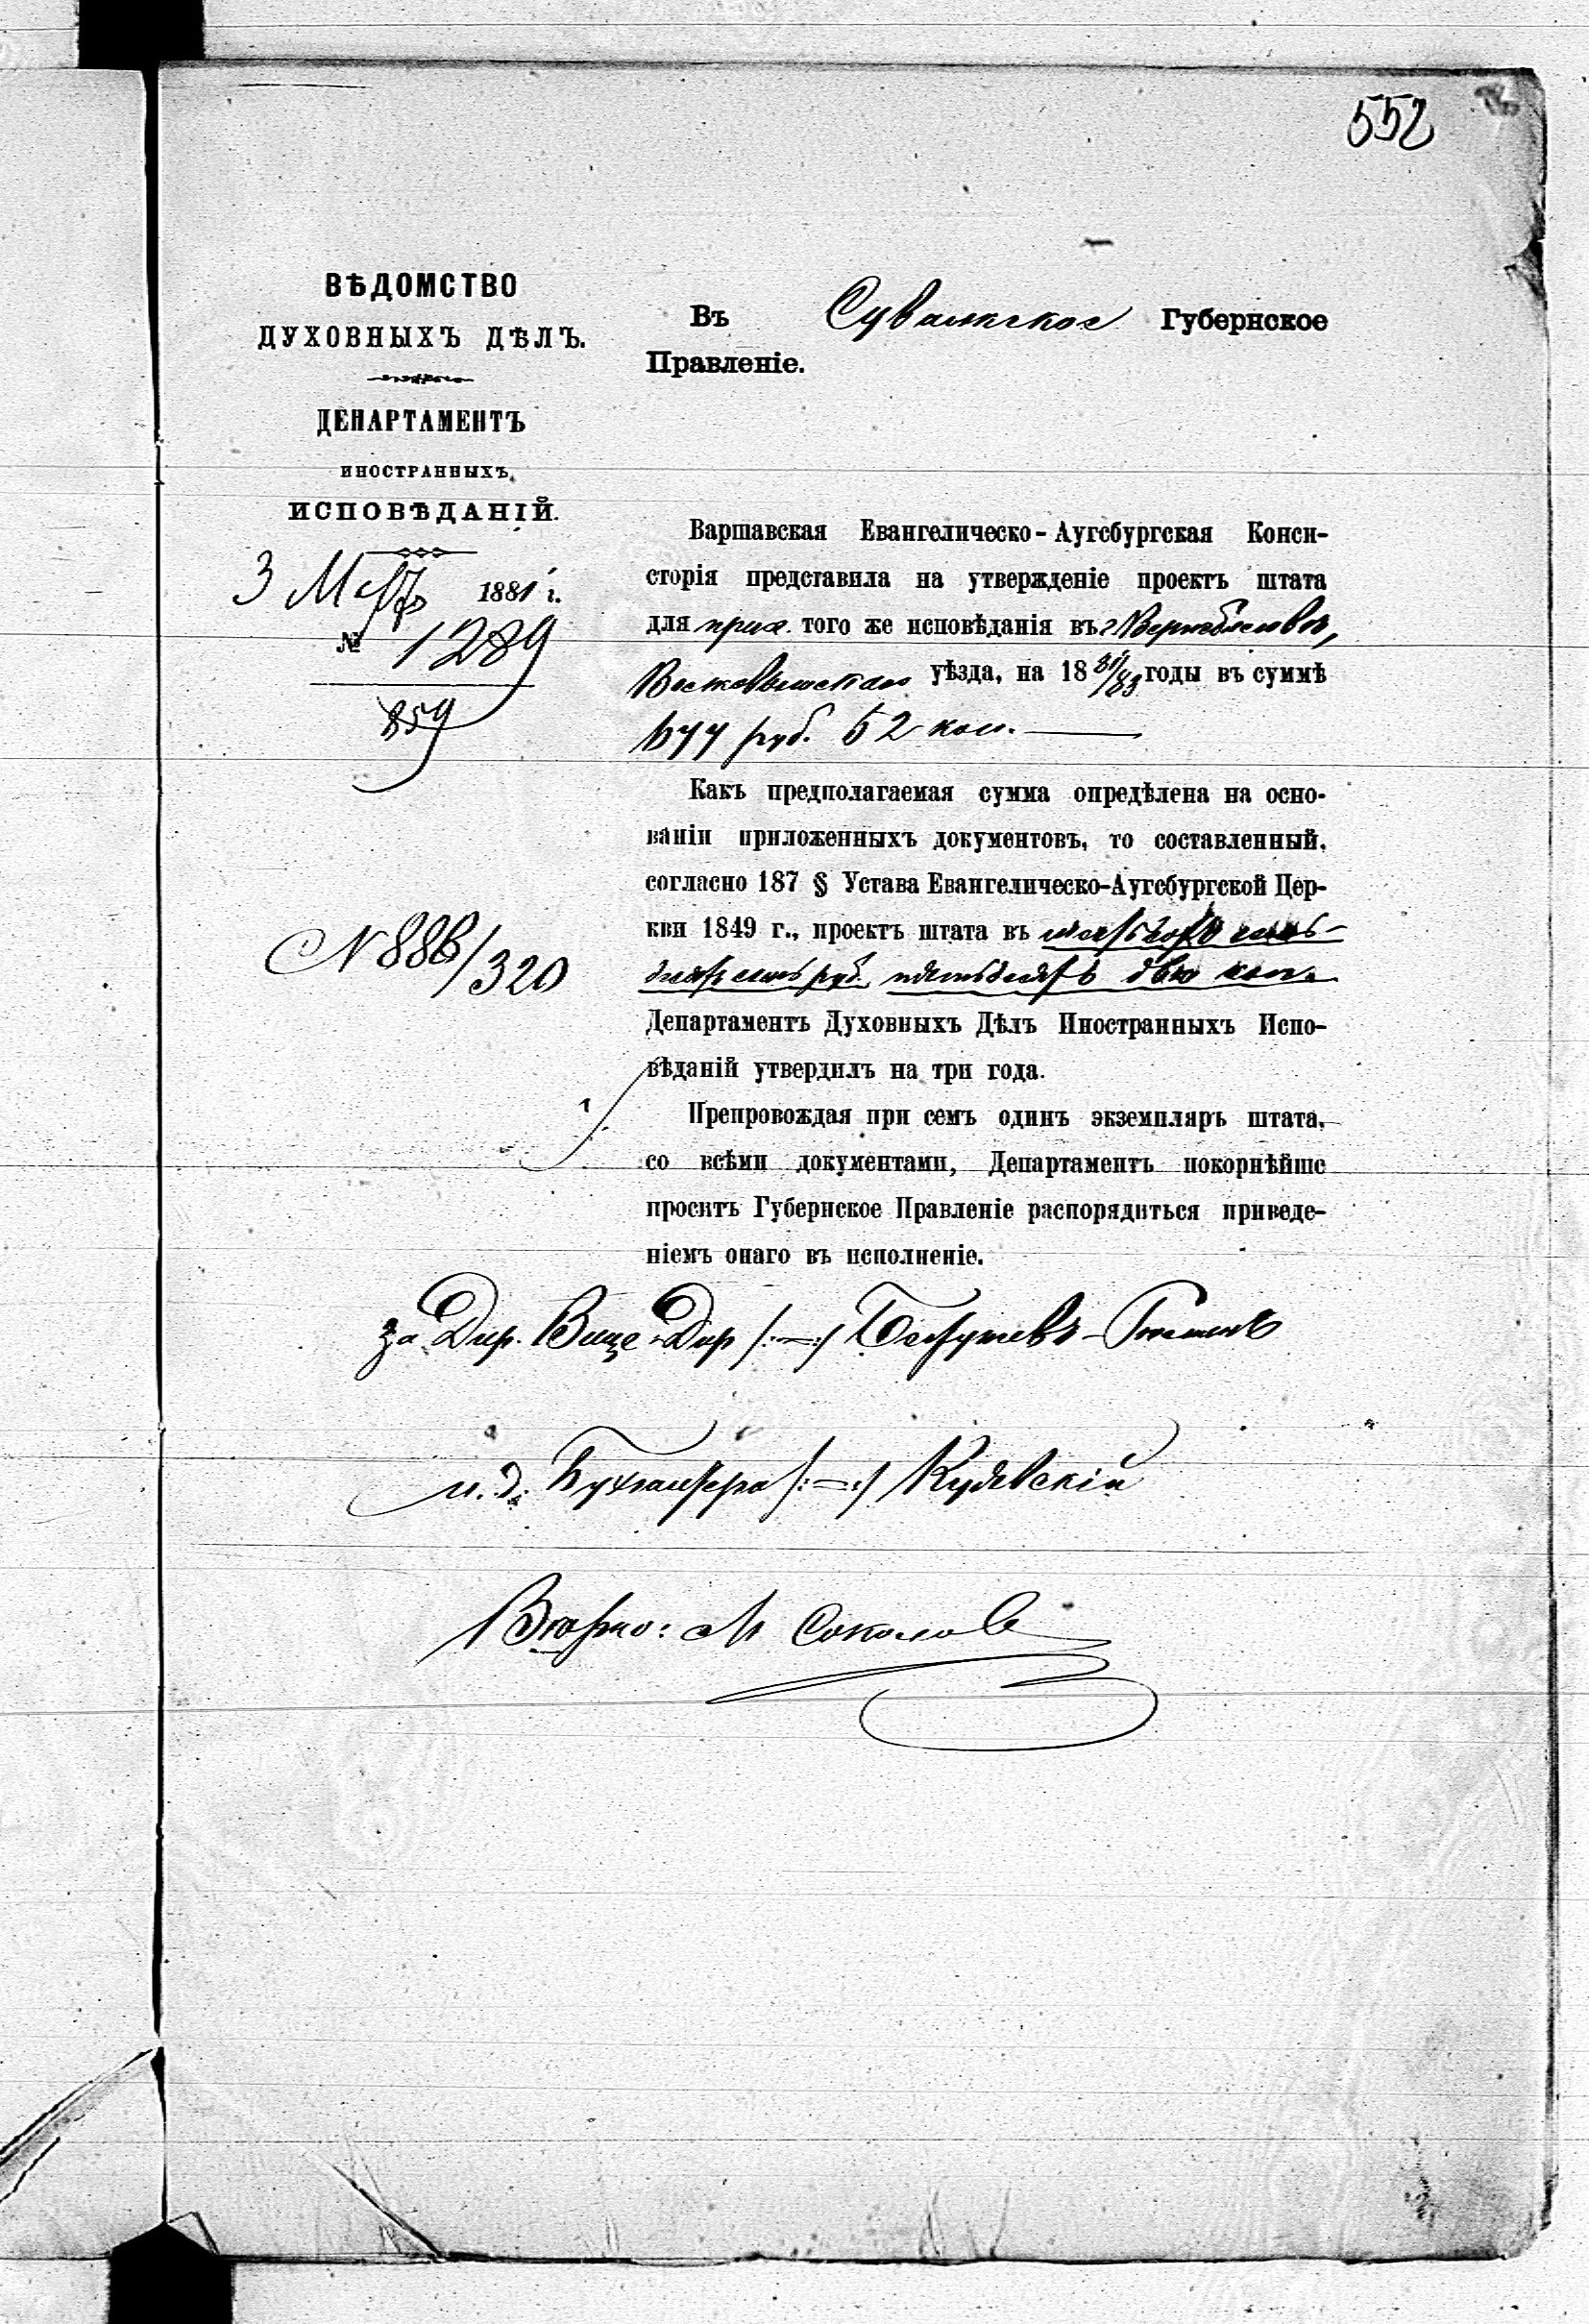 552
ВѢДОМСТВО
ДУХОВНЫХЪ ДѢЛЪ.
ДЕПАРТАМЕНТЪ
ИНОСТРАННЫХЪ
ИСПОВѢДАНІЙ.
3 Мартъ 1881 г.
№ 1289
859
№ 886/320
Въ Сувалкское Губернское
Правленіе.
Варшавская Евангелическо-Аугсбургская Конси-
сторія представила на утвержденіе проектъ штата
для прих. того же исповѣданія въ г. Вержболовѣ,
Волковышскаго уѣзда, на 18 81/83 годы въ суммѣ
677 руб. 52 коп.
Какъ предполагаемая сумма опредѣлена на осно-
ваніи приложенныхъ документовъ, то составленный,
согласно 187 § Устава Евангелическо-Аугсбургской Цер-
кви 1849 г., проектъ штата въ шестьсотъ семь-
десятъ семь руб. пятьдесятъ двѣ коп.
Департаментъ Духовныхъ Дѣлъ Иностранныхъ Испо-
вѣданій утвердилъ на три года.
Препровождая при семъ одинъ экземпляръ штата,
со всѣми документами, Департаментъ покорнѣйше
проситъ Губернское Правленіе распорядиться приведе-
ніемъ онаго въ исполненіе.
за Дир. Вице-Дир /:—:/
и. д. Бухгалтера /:—:/ Кудявскій
Вѣрно: М Соколов